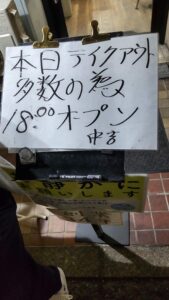 本日テイクアウト
多数の為
18:00オープン
中吉
静かに
願いします